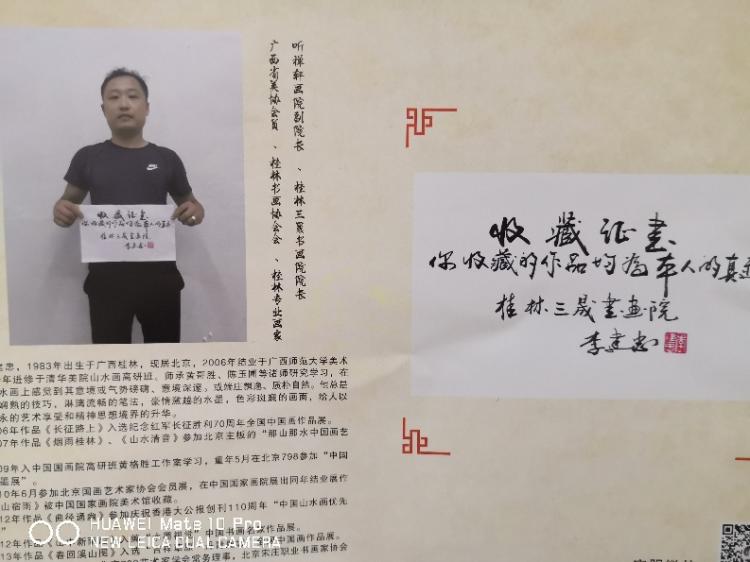 听禅轩画院副院长、桂林三晟书画院院长
广西省美协会员、桂林书画协会会、桂林专业画家
收藏证书
你收藏的作品均为本人的真迹
桂林三晟书画院
李建忠
收藏证书
你收藏的作品均为本人的真
桂林三晟书画院
李建忠
忠，1983年出生于广西桂林，现居北京，2006年结业于广西师范大学美术
年进修于清华美院山水画高研班。师承黄哥胜、陈玉圃等诸师研究学习，在
水画上感觉到其意境或气势磅礴、意境深邃，或跌庄飘逸、质朴自然。他总是
娴熟的技巧，淋漓流畅的笔法，豪情激越的水墨，色彩斑斓的画面，给人以
永的艺术享受和精神思想境界的升华。
06年作品《长征路上》入选纪念红军长征胜利70周年全国中国画作品展。
07年作品《烟雨桂林》、《山水清音》参加北京主板的“那山那水中国画艺
09年入中国国画院高研班黄格胜工作室学习，童年5月在北京798参加“中国
墨展”。
10年6月参加北京国画艺术家协会会员展，在中国国家画院展出同年结业展作
山宿雨》被中国国家画院美术馆收藏。
12年作品《曲径通幽》参加庆祝香港大公报创刊110周年“中国山水画优先
”
12年作品
中国书画名家作品展。
13年作品《春回溪山图》入选
艺术家学会常务理事，北京宋庄职业书画家协会
HUAWEI Mate 10 Pro
NEW LEICA DUAL CAMERA